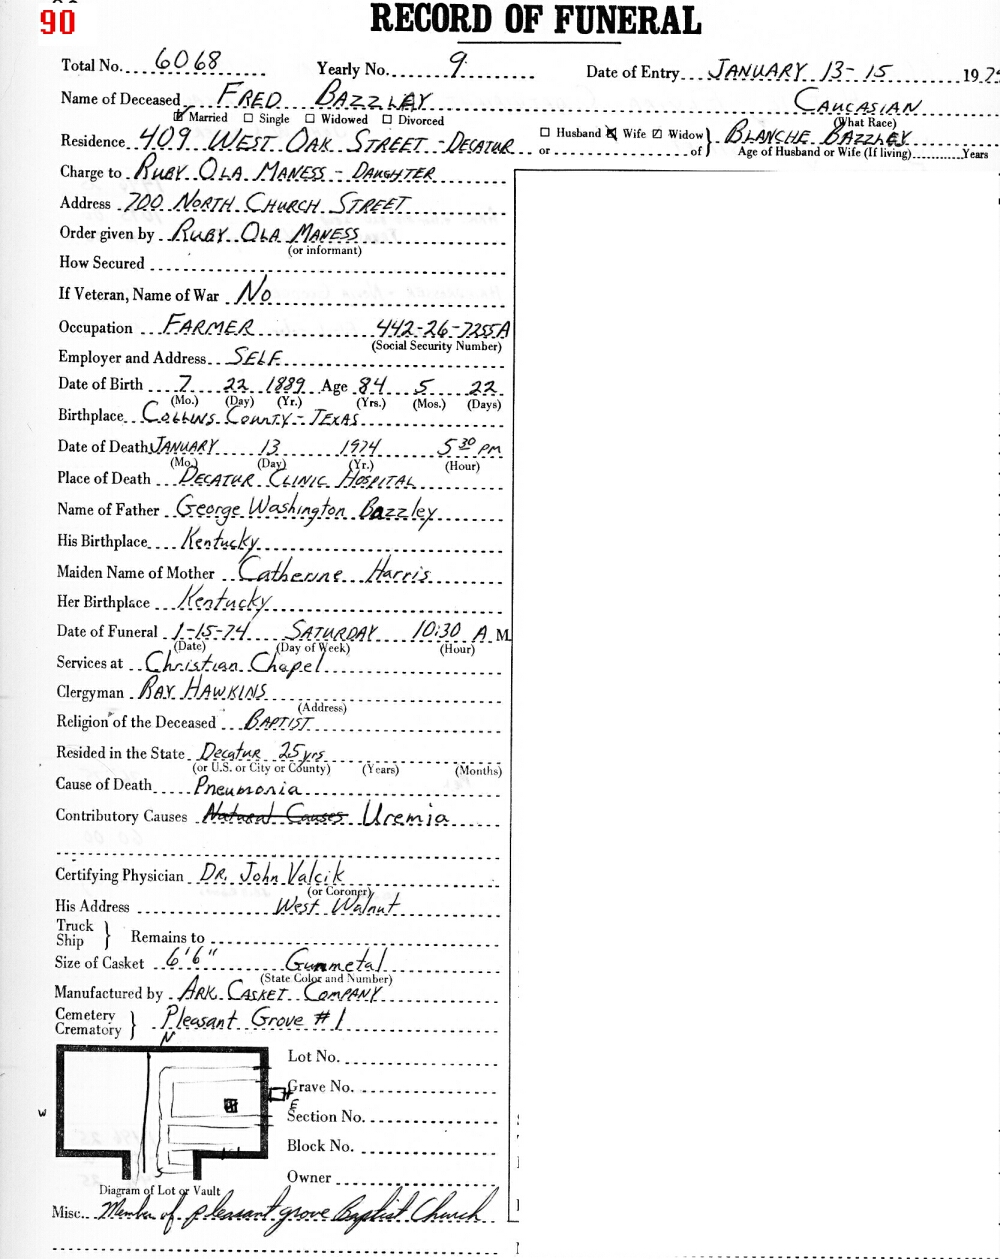 90
RECORD OF FUNERAL
Total No. 6068 Yearly No. 9 Date of Entry JANUARY 13-15 197
Name of Deceased FRED BAZZLEY CAUCASIAN
☒ Married ☐ Single ☐ Widowed ☐ Divorced (What Race)
Residence 409 WEST OAK STREET - DECATUR ☐ Husband ☒ Wife ☑ Widow } BLANCHE BAZZLEY
or of } Age of Husband or Wife (If living) Years
Charge to RUBY OLA MANESS - DAUGHTER
Address 700 NORTH CHURCH STREET
Order given by RUBY OLA MANESS
(or informant)
How Secured
If Veteran, Name of War No
Occupation FARMER 442-26-7255A
(Social Security Number)
Employer and Address SELF
Date of Birth 7 22 1889 Age 84 5 22
(Mo.) (Day) (Yr.) (Yrs.) (Mos.) (Days)
Birthplace COLLINS COUNTY - TEXAS
Date of Death JANUARY 13 1974 5 30 PM
(Mo.) (Day) (Yr.) (Hour)
Place of Death DECATUR CLINIC HOSPITAL
Name of Father George Washington Bazzley
His Birthplace Kentucky
Maiden Name of Mother Catherine Harris
Her Birthplace Kentucky
Date of Funeral 1-15-74 SATURDAY 10:30 A M.
(Date) (Day of Week) (Hour)
Services at Christian Chapel
Clergyman RAY HAWKINS
(Address)
Religion of the Deceased BAPTIST
Resided in the State Decatur 25 yrs
(or U.S. or City or County) (Years) (Months)
Cause of Death Pneumonia
Contributory Causes Natural Causes Uremia
Certifying Physician DR. John Valcik
(or Coroner)
His Address West Walnut
Truck
Ship } Remains to
Size of Casket 6'6" Gunmetal
(State Color and Number)
Manufactured by ARK. CASKET COMPANY
Cemetery
Crematory } Pleasant Grove #1
N
Lot No.
Grave No.
W E
Section No.
Block No.
S
Owner
Diagram of Lot or Vault
Misc. Member of pleasant grove Baptist Church